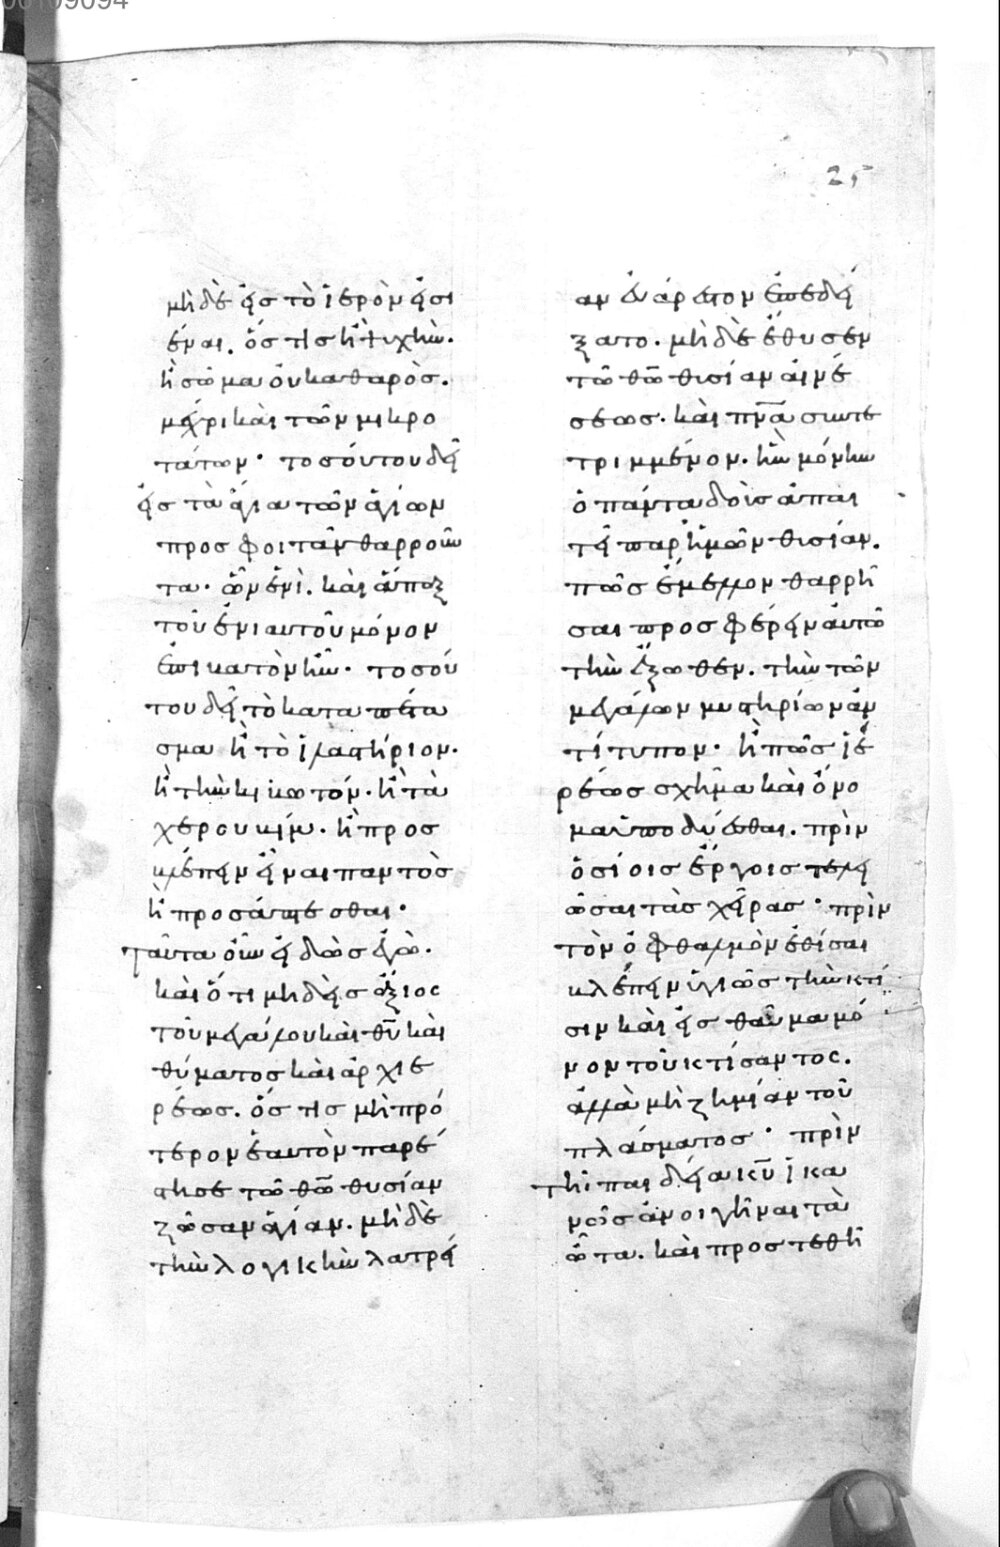 00109094
25
μὴ δὲ εἰς τὸ ἱερὸν εἰσι
έναι. ὅς τις ἢ ψυχὴν.
ἢ σῶμα οὐ καθαρὸς.
μέχρι καὶ τῶν μικρο
τάτων· τοσούτου δεῖ
εἰς τὰ ἅγια τῶν ἁγίων
προσφοιτᾶν θαρροῦν
τα· ὧν ἑνὶ. καὶ ἅπαξ
τοῦ ἐνιαυτοῦ μόνον
ἐπιβατὸν ἦν· τοσού
του δεῖ τὸ καταπέτα
σμα ἢ τὸ ἱλαστήριον·
ἢ τὴν κιβωτόν· ἢ τὰ
χερουβίμ· ἢ προσ
βλέπειν εἶναι παντὸς
ἢ προσάπτεσθαι·
ταῦτα οὖν εἰδὼς ἐγὼ.
καὶ ὅτι μὴ δεὶς ἄξιος
τοῦ μεγάλου καὶ θῡ καὶ
θύματος καὶ ἀρχιε
ρέως. ὅς τις μὴ πρό
τερον ἑαυτὸν παρέ
στησε τῶ θω̅ θυσίαν
ζῶσαν ἁγίαν. μὴ δὲ
τὴν λογικὴν λατρεί
αν εὐάρεστον ἐπεδεί
ξατο. μὴ δὲ ἔθυσεν
τῶ θω̅ θυσίαν αἰνέ
σεως· καὶ πν̅α συντε
τριμμένον. ἣν μόνην
ὁ πάντα δοὺς ἀπαι
τεῖ παρ' ἡμῶν θυσίαν.
πῶς ἔμελλον θαρρῆ
σαι προσφέρειν αὐτῶ
τὴν ἔξωθεν. τὴν τῶν
μεγάλων μυστηρίων ἀν
τίτυπον· ἢ πῶς ἱε
ρέως σχῆμα καὶ ὄνο
μα ὑποδύεσθαι. πρὶν
ὁσίοις ἔργοις τελει
ῶσαι τὰς χεῖρας· πρὶν
τὸν ὀφθαλμὸν ἐθίσαι
βλέπειν ὑγιῶς τὴν κτί
σιν καὶ εἰς θαῦμα μό
νον τοῦ κτίσαντος.
ἀλλὰ μὴ ζημίαν τοῦ
πλάσματος· πρὶν
τῆ παιδεία κῡ ἱκα
νῶς ἀνοιγῆναι τὰ
ὦτα. καὶ προστεθῆ